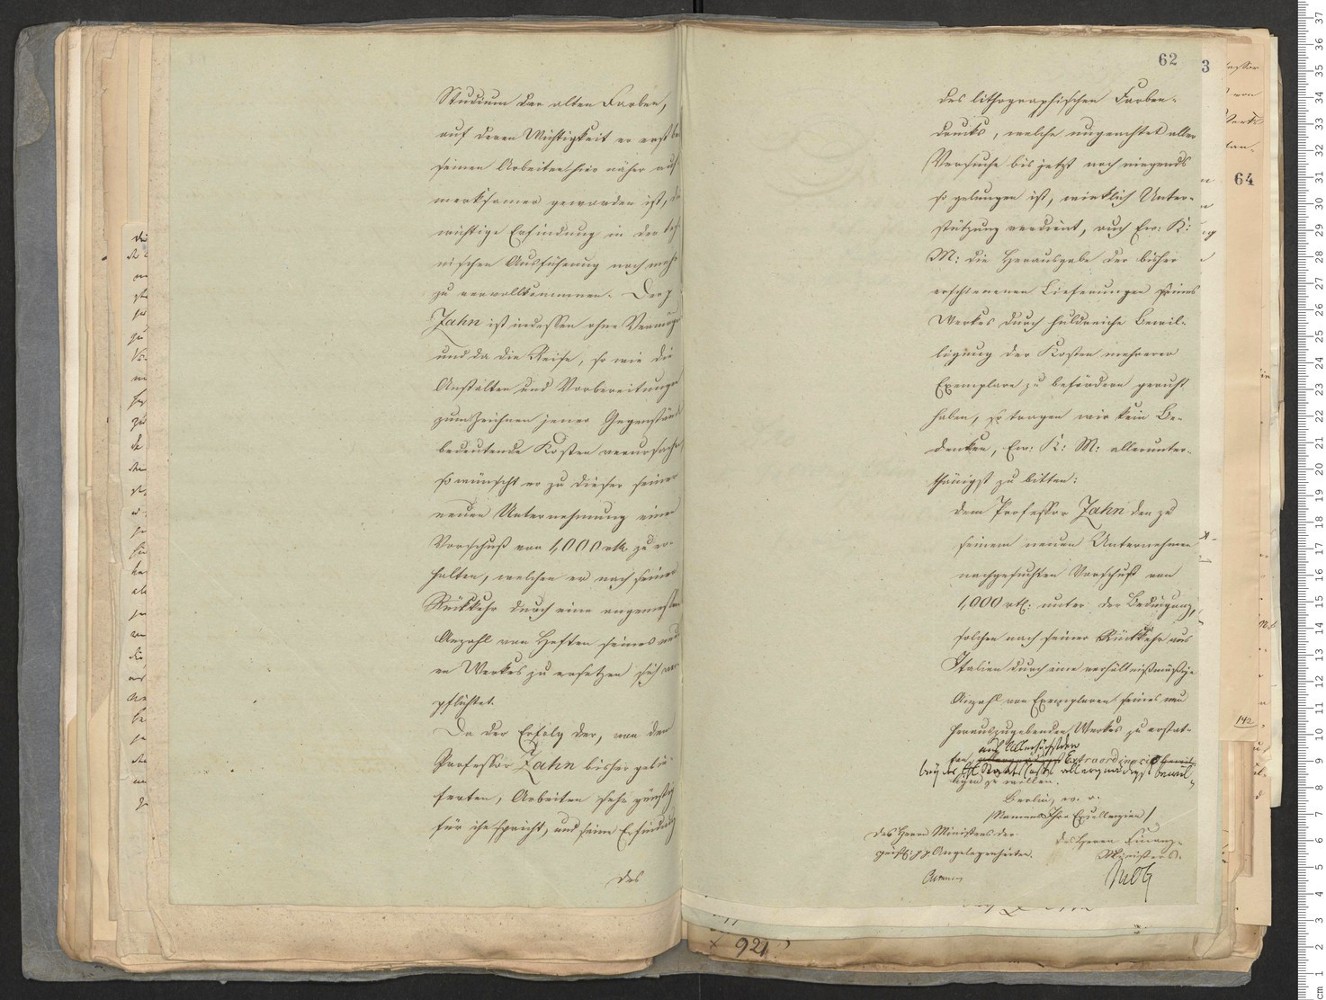 Studium der alten Farben,
auf deren Wichtigkeit er erst bei
seinen Arbeiten hier näher auf
merksamer geworden ist, die
wichtige Erfindung in der tech
nischen Ausführung noch mehr
zu vervollkommnen. Der p
Zahn ist indessen ohne Vermögen
und da die Reise, so wie die
Anstalten und Vorbereitungen
zum Zeichnen jener Gegenstände
bedeutende Kosten verursachen,
so wünscht er zu dieser seiner
neuen Unternehmung einen
Vorschuß von 1,000 rtl. zu er-
halten, welchen er nach seiner
Rückkehr durch eine angemessene
Anzahl von Heften seines neu
en Werkes zu ersetzen sich ver
pflichtet.
Da der Erfolg der, von dem
Professor Zahn bisher gelie-
ferten, Arbeiten sehr günstig
für ihn spricht, und seine Erfindung
des
62
3
des lithographischen Farben-
drucks, welche ungeachtet aller
Versuche bis jetzt noch nirgends
so gelungen ist, wirklich Unter-
stützung verdient, auch Ew: K:
M: die Herausgabe der bisher
erschienenen Lieferungen seines
Werkes durch huldreiche Bewil-
ligung der Kosten mehrerer
Exemplare zu befördern geruht
haben, so tragen wir kein Be-
denken, Ew: K: M: allerunter-
thänigst zu bitten:
dem Professor Zahn den zu
seinem neuen Unternehmen
nachgesuchten Vorschuß von
1,000 rtl: unter der Bedingung,
solchen nach seiner Rückkehr aus
Italien durch eine verhältnißmäßige
Anzahl von Exemplaren seines neu
herauszugebenden Werkes zu erstat-
ten
auf Allerhöchstdero
Extraordinario
bey der allergnädigst bewil-
ligen zu wollen.
Berlin, w. v.
/Namens Ihre Excellenzien/
des Herrn Ministers der
geistl: p p Angelegenheiten.
des Herrn Finanz-
Ministers.
64
142
921